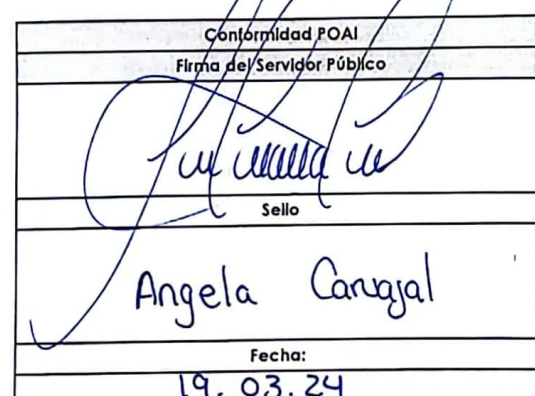 Conformidad POAI
Firma del Servidor Público
Sello
Angela Carvajal
Fecha:
19.03.24